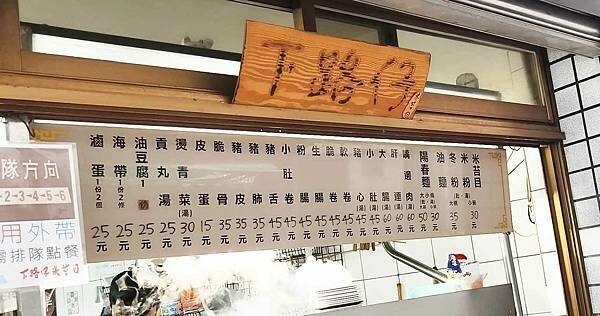 下路仔
滷蛋 1份2個 25元
海帶 1份2條 25元
油豆腐1 25元
貢丸湯 25元
燙青菜(湯) 30元
皮蛋 15元
脆骨 35元
豬皮 35元
豬肺 35元
豬舌 45元
小肚卷 45元
粉腸 45元
生腸 45元
脆卷 45元
軟卷 45元
豬心(湯) 45元
小肚(湯) 45元
大腸(湯) 60元
肝連(湯) 60元
嘴邊肉(湯) 60元
陽春麵
油麵
大碗 50元
小碗 30元
冬粉
米粉
米苔目
大碗 35元
小碗 30元
隊方向
-2-3-4-5-6
用外帶
需排隊點餐
下路仔米苔目